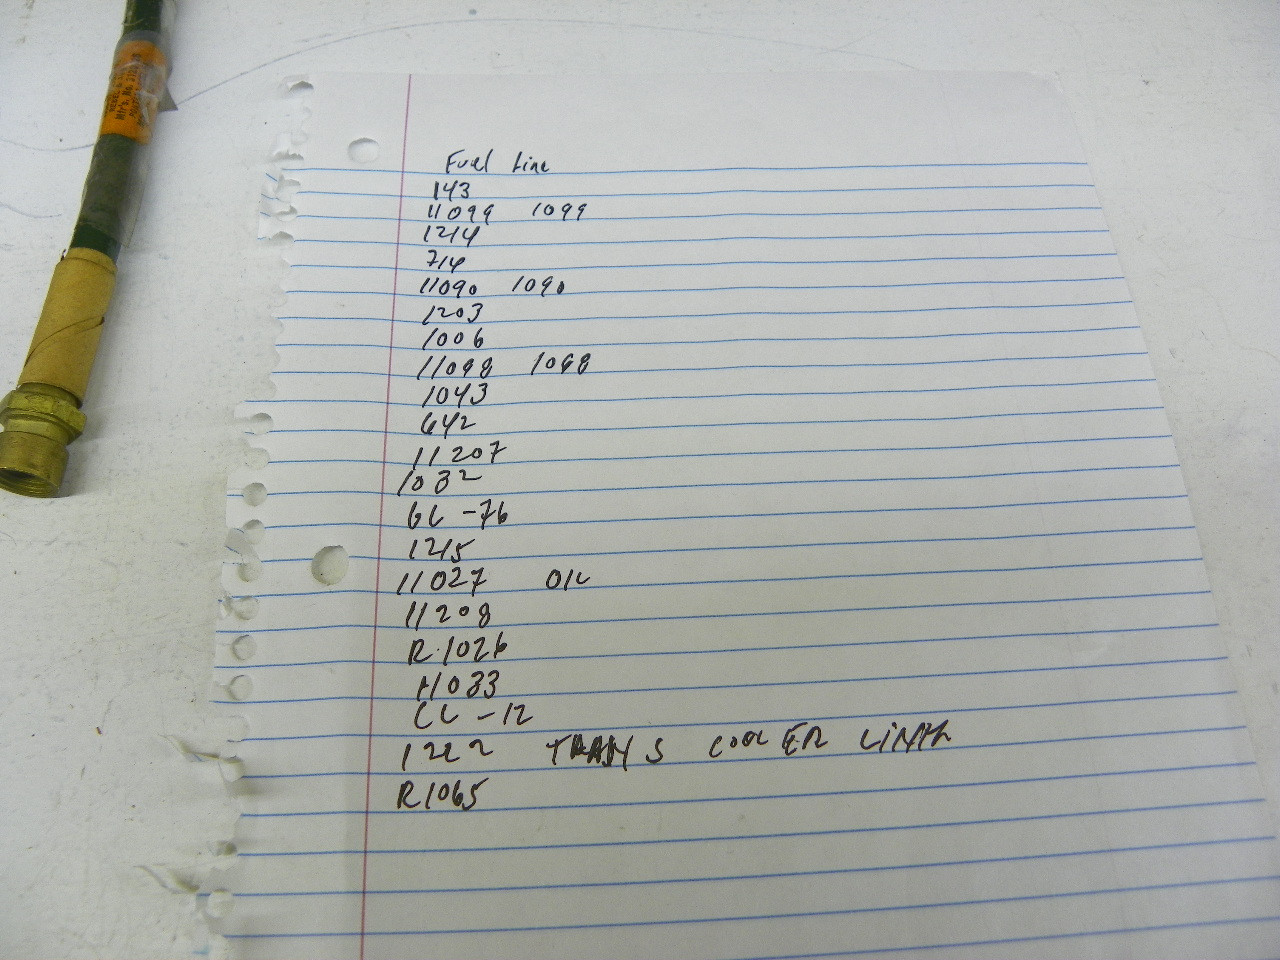 Mfr's. No.
Fuel Line
143
11099 1099
1214
714
11090 1090
1203
1006
11098 1098
1043
642
11207
1032
GL-76
1215
11027 OIL
11208
R1026
H033
CL-12
1222 TRANS COOLER
R1065